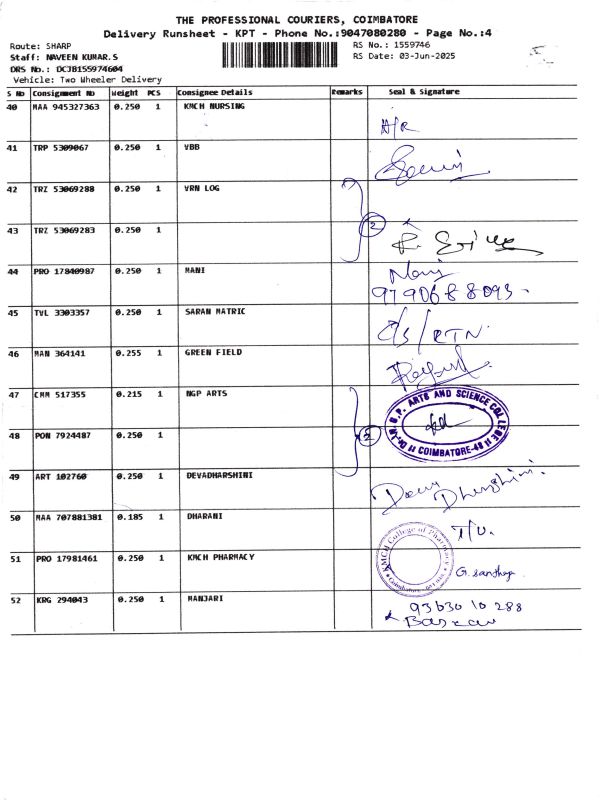 THE PROFESSIONAL COURIERS, COIMBATORE
Delivery Runsheet - KPT - Phone No.:9047080280 - Page No.:4
Route: SHARP
RS No.: 1559746
Staff: NAVEEN KUMAR.S
RS Date: 03-Jun-2025
DRS No.: DCJB155974604
Vehicle: Two Wheeler Delivery
S No Consignment No Weight PCS Consignee Details Remarks Seal & Signature
40 MAA 945327363 0.250 1 KMCH NURSING
A/R
41 TRP 5309067 0.250 1 VBB
42 TRZ 53069288 0.250 1 VRN LOG
2
43 TRZ 53069283 0.250 1
44 PRO 17840987 0.250 1 MANI
Mani
9790688093
45 TVL 3303357 0.250 1 SARAN MATRIC
C/S / RTN
46 MAN 364141 0.255 1 GREEN FIELD
47 CMM 517355 0.215 1 NGP ARTS
Dr. N.G.P. ARTS AND SCIENCE COLLEGE
COIMBATORE-48
2
48 PON 7924487 0.250 1
49 ART 102760 0.250 1 DEVADHARSHINI
Deva Dharshini
50 MAA 707881381 0.185 1 DHARANI
T/U.
51 PRO 17981461 0.250 1 KMCH PHARMACY
KMCH College of Pharmacy
Coimbatore
G. Santhya
52 KRG 294043 0.250 1 MANJARI
93630 10 288
Baskar